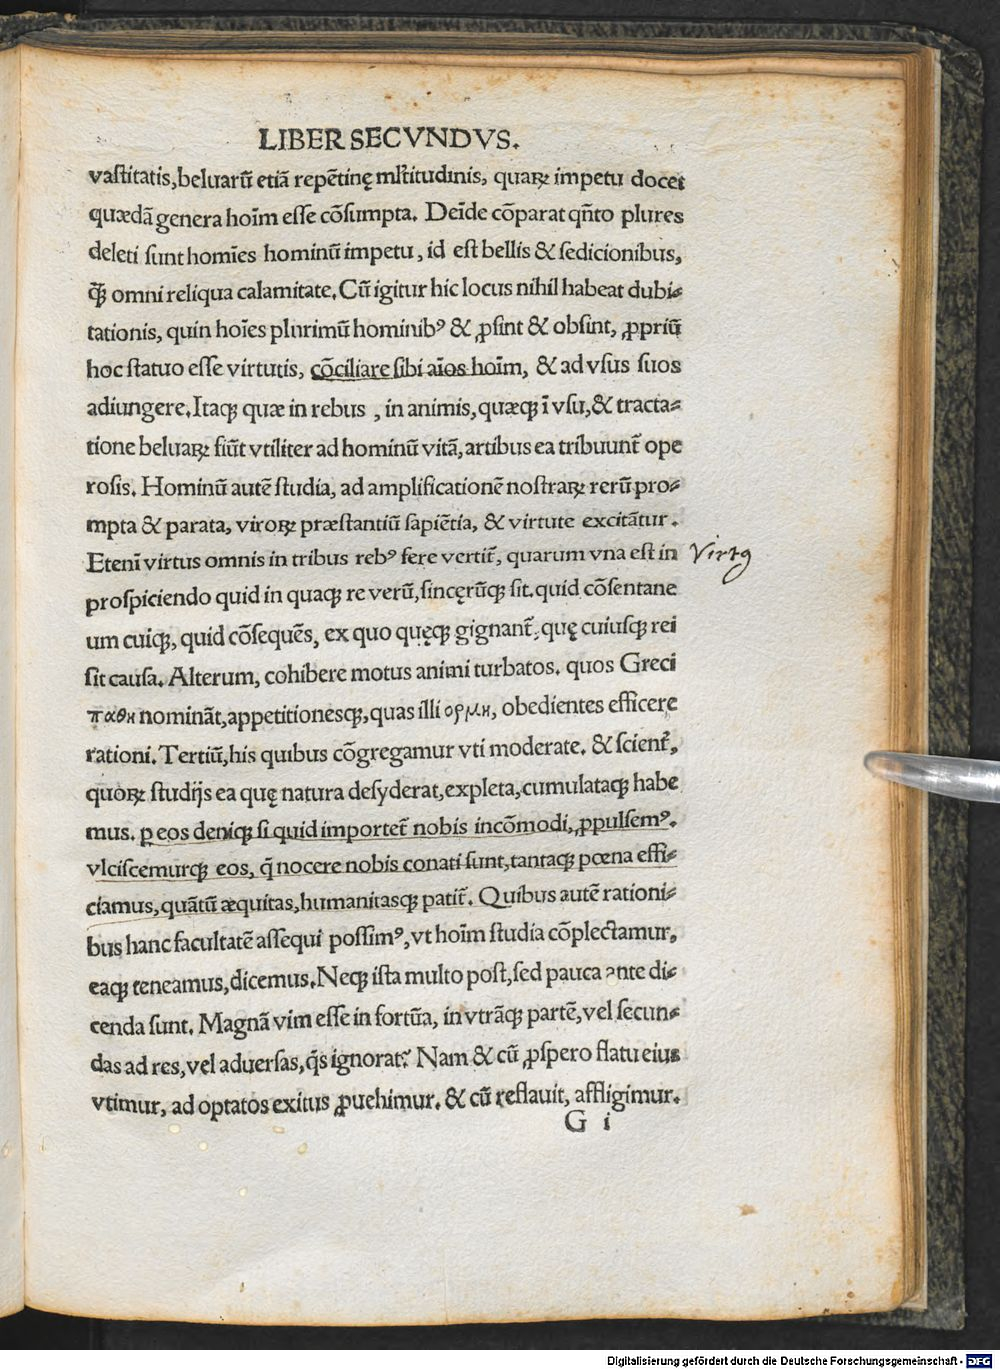 LIBER SECVNDVS.
vaſtitatis, beluarū etiā repētinę mĺtitudinis, quaꝝ impetu docet
quædā genera hoīm eſſe cōſumpta. Deīde cōparat qñto plures
deleti ſunt homīes hominū impetu, id eſt bellis & ſedicionibus,
ꝙ̄ omni reliqua calamitate. Cū igitur hic locus nihil habeat dubi-
tationis, quin hoīes plurimū hominibꝰ & ꝓſint & obſint, ꝓpriū
hoc ſtatuo eſſe virtutis, cōciliare ſibi aīos hoīm, & ad vſus ſuos
adiungere. Itaqꝫ quæ in rebus , in animis, quæqꝫ ī vſu, & tracta-
tione beluaꝝ fiūt vtiliter ad hominū vitā, artibus ea tribuunt̄ ope
roſis. Hominū autē ſtudia, ad amplificationē noſtraꝝ rerū pro-
mpta & parata, viroꝝ præſtantiū ſapiētia, & virtute excitātur.
Etenī virtus omnis in tribus rebꝰ fere vertit̄, quarum vna eſt in
Virtꝰ
proſpiciendo quid in quaqꝫ re verū, ſincęrūqꝫ ſit. quid cōſentane
um cuiqꝫ, quid cōſequēs, ex quo quęqꝫ gignant̄, quę cuiuſqꝫ rei
ſit cauſa. Alterum, cohibere motus animi turbatos. quos Greci
παθη nomināt, appetitioneſqꝫ, quas illi ορμη, obedientes efficere
rationi. Tertiū, his quibus cōgregamur vti moderate. & ſcient̄,
quoꝝ ſtudijs ea quę natura deſyderat, expleta, cumulataqꝫ habe
mus. ꝑ eos deniqꝫ ſi quid importet̄ nobis incōmodi, ꝓpulſemꝰ.
vlciſcemurqꝫ eos, q̄ nocere nobis conati ſunt, tantaqꝫ pœna effi-
ciamus, quātū æquitas, humanitasqꝫ patit̄. Quibus autē rationi-
bus hanc facultatē aſſequi poſſimꝰ, vt hoīm ſtudia cōplectamur,
eaqꝫ teneamus, dicemus. Neqꝫ iſta multo poſt, ſed pauca ante di-
cenda ſunt. Magnā vim eſſe in fortūa, in vtrāqꝫ partē, vel ſecun-
das ad res, vel aduerſas, q̄s ignorat? Nam & cū ꝓſpero flatu eius
vtimur, ad optatos exitus ꝓuehimur. & cū reflauit, affligimur.
G i
Digitalisierung gefördert durch die Deutsche Forschungsgemeinschaft - DFG